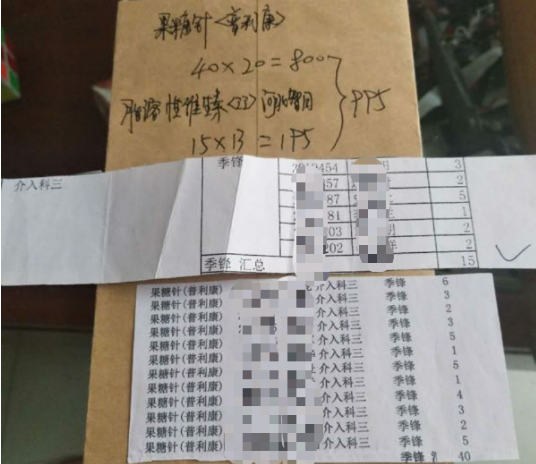 果糖针<普利康>
40×20=800
脂溶性维臻<23>河北智同
15×13=195
995
介入科三
季锋
454 3
57 2
87 5
81 1
03 2
202 2
季锋 汇总 15
果糖针(普利康) 介入科三 季锋 6
果糖针(普利康) 介入科三 季锋 3
果糖针(普利康) 介入科三 季锋 2
果糖针(普利康) 介入科三 季锋 3
果糖针(普利康) 介入科三 季锋 5
果糖针(普利康) 介入科三 季锋 1
果糖针(普利康) 介入科三 季锋 5
果糖针(普利康) 介入科三 季锋 1
果糖针(普利康) 介入科三 季锋 4
果糖针(普利康) 介入科三 季锋 3
果糖针(普利康) 介入科三 季锋 2
果糖针(普利康) 介入科三 季锋 5
季锋 40